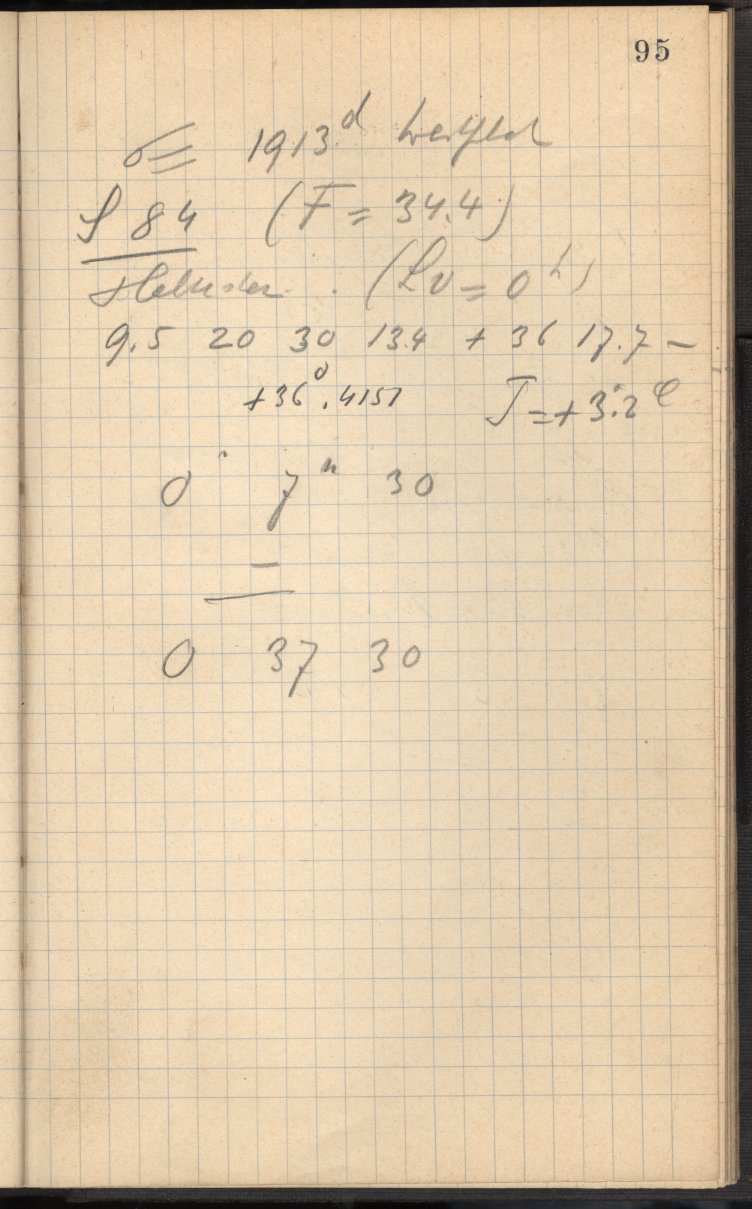 95
1913 d
S 84 (F = 34.4)
(Lv = 0 h)
9.5 20 30 13.4 + 36 17.7 -
+36°.4151 T = +3.2
0 7 m 30
-
0 37 30